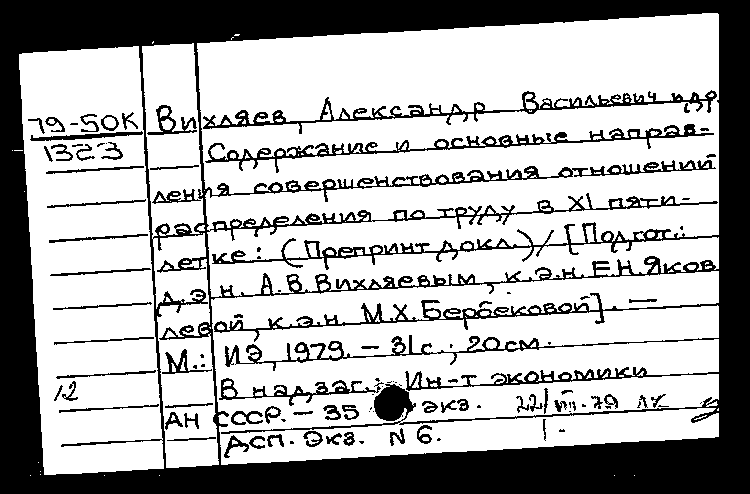 79-50К Вихляев, Александр Васильевич и др.
1323 Содержание и основные направ-
ления совершенствования отношений
распределения по труду в XI пяти-
летке: (Препринт докл.) / [Подгот.:
д.э.н. А.В. Вихляевым, к.э.н. Е.Н. Яков
левой, к.э.н. М.Х. Бербековой]. —
М.: ИЭ, 1979. – 31 с.; 20 см.
12 В надзаг.: Ин-т экономики
АН СССР. – 35 экз. 22/VIII-79
ДСП. Экз. N 6.